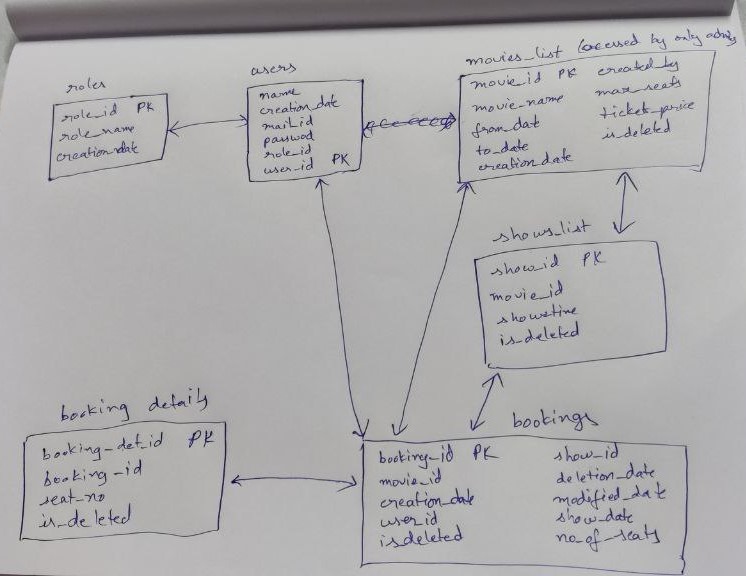 roles
role_id PK
role_name
creation_date
users
name
creation_date
mail_id
passwod
role_id
user_id PK
movies_list (accessed by only admin
movie_id PK
movie_name
from_date
to_date
creation_date
created_by
max_seats
ticket_price
is_deleted
shows_list
show_id PK
movie_id
showtime
is_deleted
booking details
booking_det_id PK
booking_id
seat_no
is_deleted
bookings
booking_id PK
movie_id
creation_date
user_id
isdeleted
show_id
deletion_date
modified_date
show_date
no_of_seats